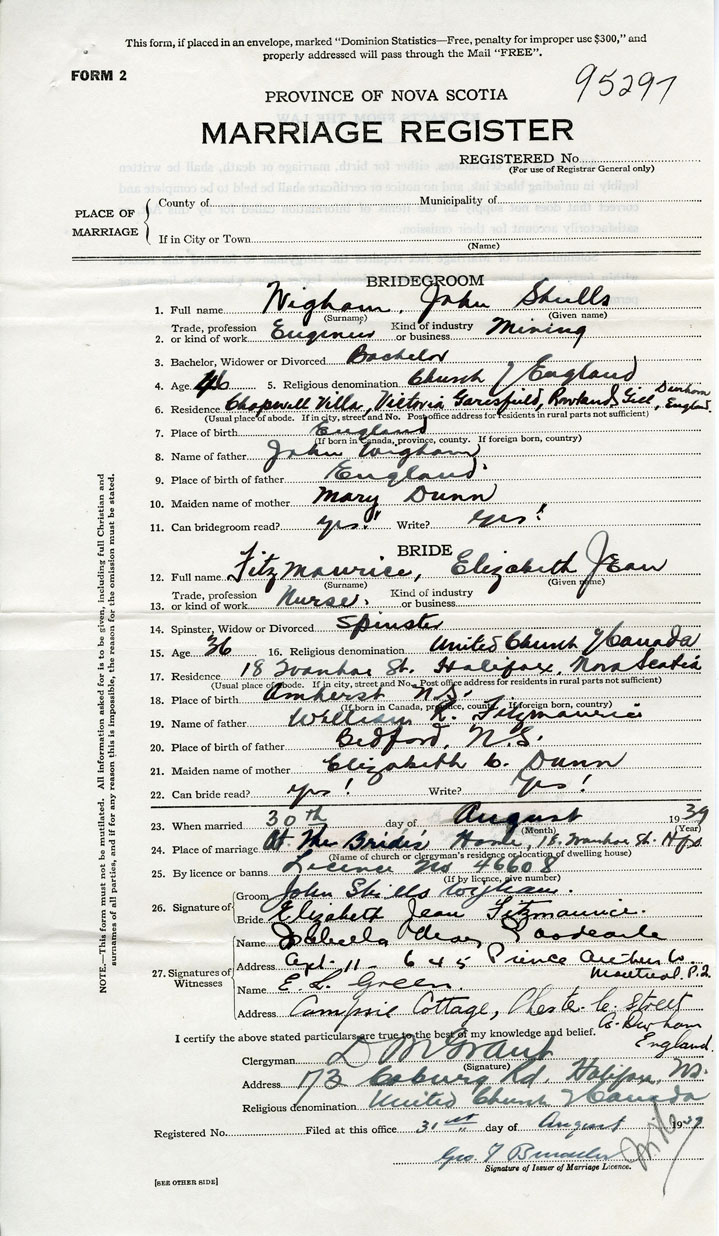 This form, if placed in an envelope, marked "Dominion Statistics—Free, penalty for improper use $300," and
properly addressed will pass through the Mail "FREE".
FORM 2
95297
PROVINCE OF NOVA SCOTIA
MARRIAGE REGISTER
REGISTERED No.
(For use of Registrar General only)
PLACE OF MARRIAGE
County of Municipality of
If in City or Town
(Name)
BRIDEGROOM
1. Full name Wigham, John Skills
(Surname) (Given name)
2. Trade, profession or kind of work Engineer Kind of industry or business Mining
3. Bachelor, Widower or Divorced Bachelor
4. Age 46 5. Religious denomination Church of England
6. Residence Villa, Victoria Rowland Gill, England
(Usual place of abode. If in city, street and No. Post office address for residents in rural parts not sufficient)
7. Place of birth England
(If born in Canada, province, county. If foreign born, country)
8. Name of father John Wigham
9. Place of birth of father England.
10. Maiden name of mother Mary Dunn
11. Can bridegroom read? yes! Write? yes!
BRIDE
12. Full name Fitzmaurice, Elizabeth Jean
(Surname) (Given name)
13. Trade, profession or kind of work Nurse. Kind of industry or business
14. Spinster, Widow or Divorced Spinster
15. Age 36 16. Religious denomination United Church of Canada
17. Residence 18 Ivanhoe St. Halifax, Nova Scotia
(Usual place of abode. If in city, street and No. Post office address for residents in rural parts not sufficient)
18. Place of birth Amherst N.S.
(If born in Canada, province, county. If foreign born, country)
19. Name of father William R. Fitzmaurice
20. Place of birth of father Bedford, N.S.
21. Maiden name of mother Elizabeth C. Dunn
22. Can bride read? yes! Write? Yes!
23. When married 30th day of August 1939
(Month) (Year)
24. Place of marriage At The Bride's Home, 18 Ivanhoe St. Hfx.
(Name of church or clergyman's residence or location of dwelling house)
25. By licence or banns Licence No 46608
(If by licence, give number)
26. Signature of Groom John Skills Wigham.
Bride Elizabeth Jean Fitzmaurice.
27. Signatures of Witnesses
Name Isabella
Address Apt. 11 - 645 Prince Arthur W.
Montreal. P.Q.
Name E. L. Green.
Address Cottage, Chester le Street
Co. Durham
England.
I certify the above stated particulars are true to the best of my knowledge and belief.
Clergyman D M Grant
(Signature)
Address 73 Coburg Rd, Halifax, N.S.
Religious denomination United Church of Canada
Registered No. Filed at this office 31st day of August 1939
Geo. T
Signature of Issuer of Marriage Licence.
[SEE OTHER SIDE]
NOTE.—This form must not be mutilated. All information asked for is to be given, including full Christian and
surnames of all parties, and if for any reason this is impossible, the reason for the omission must be stated.